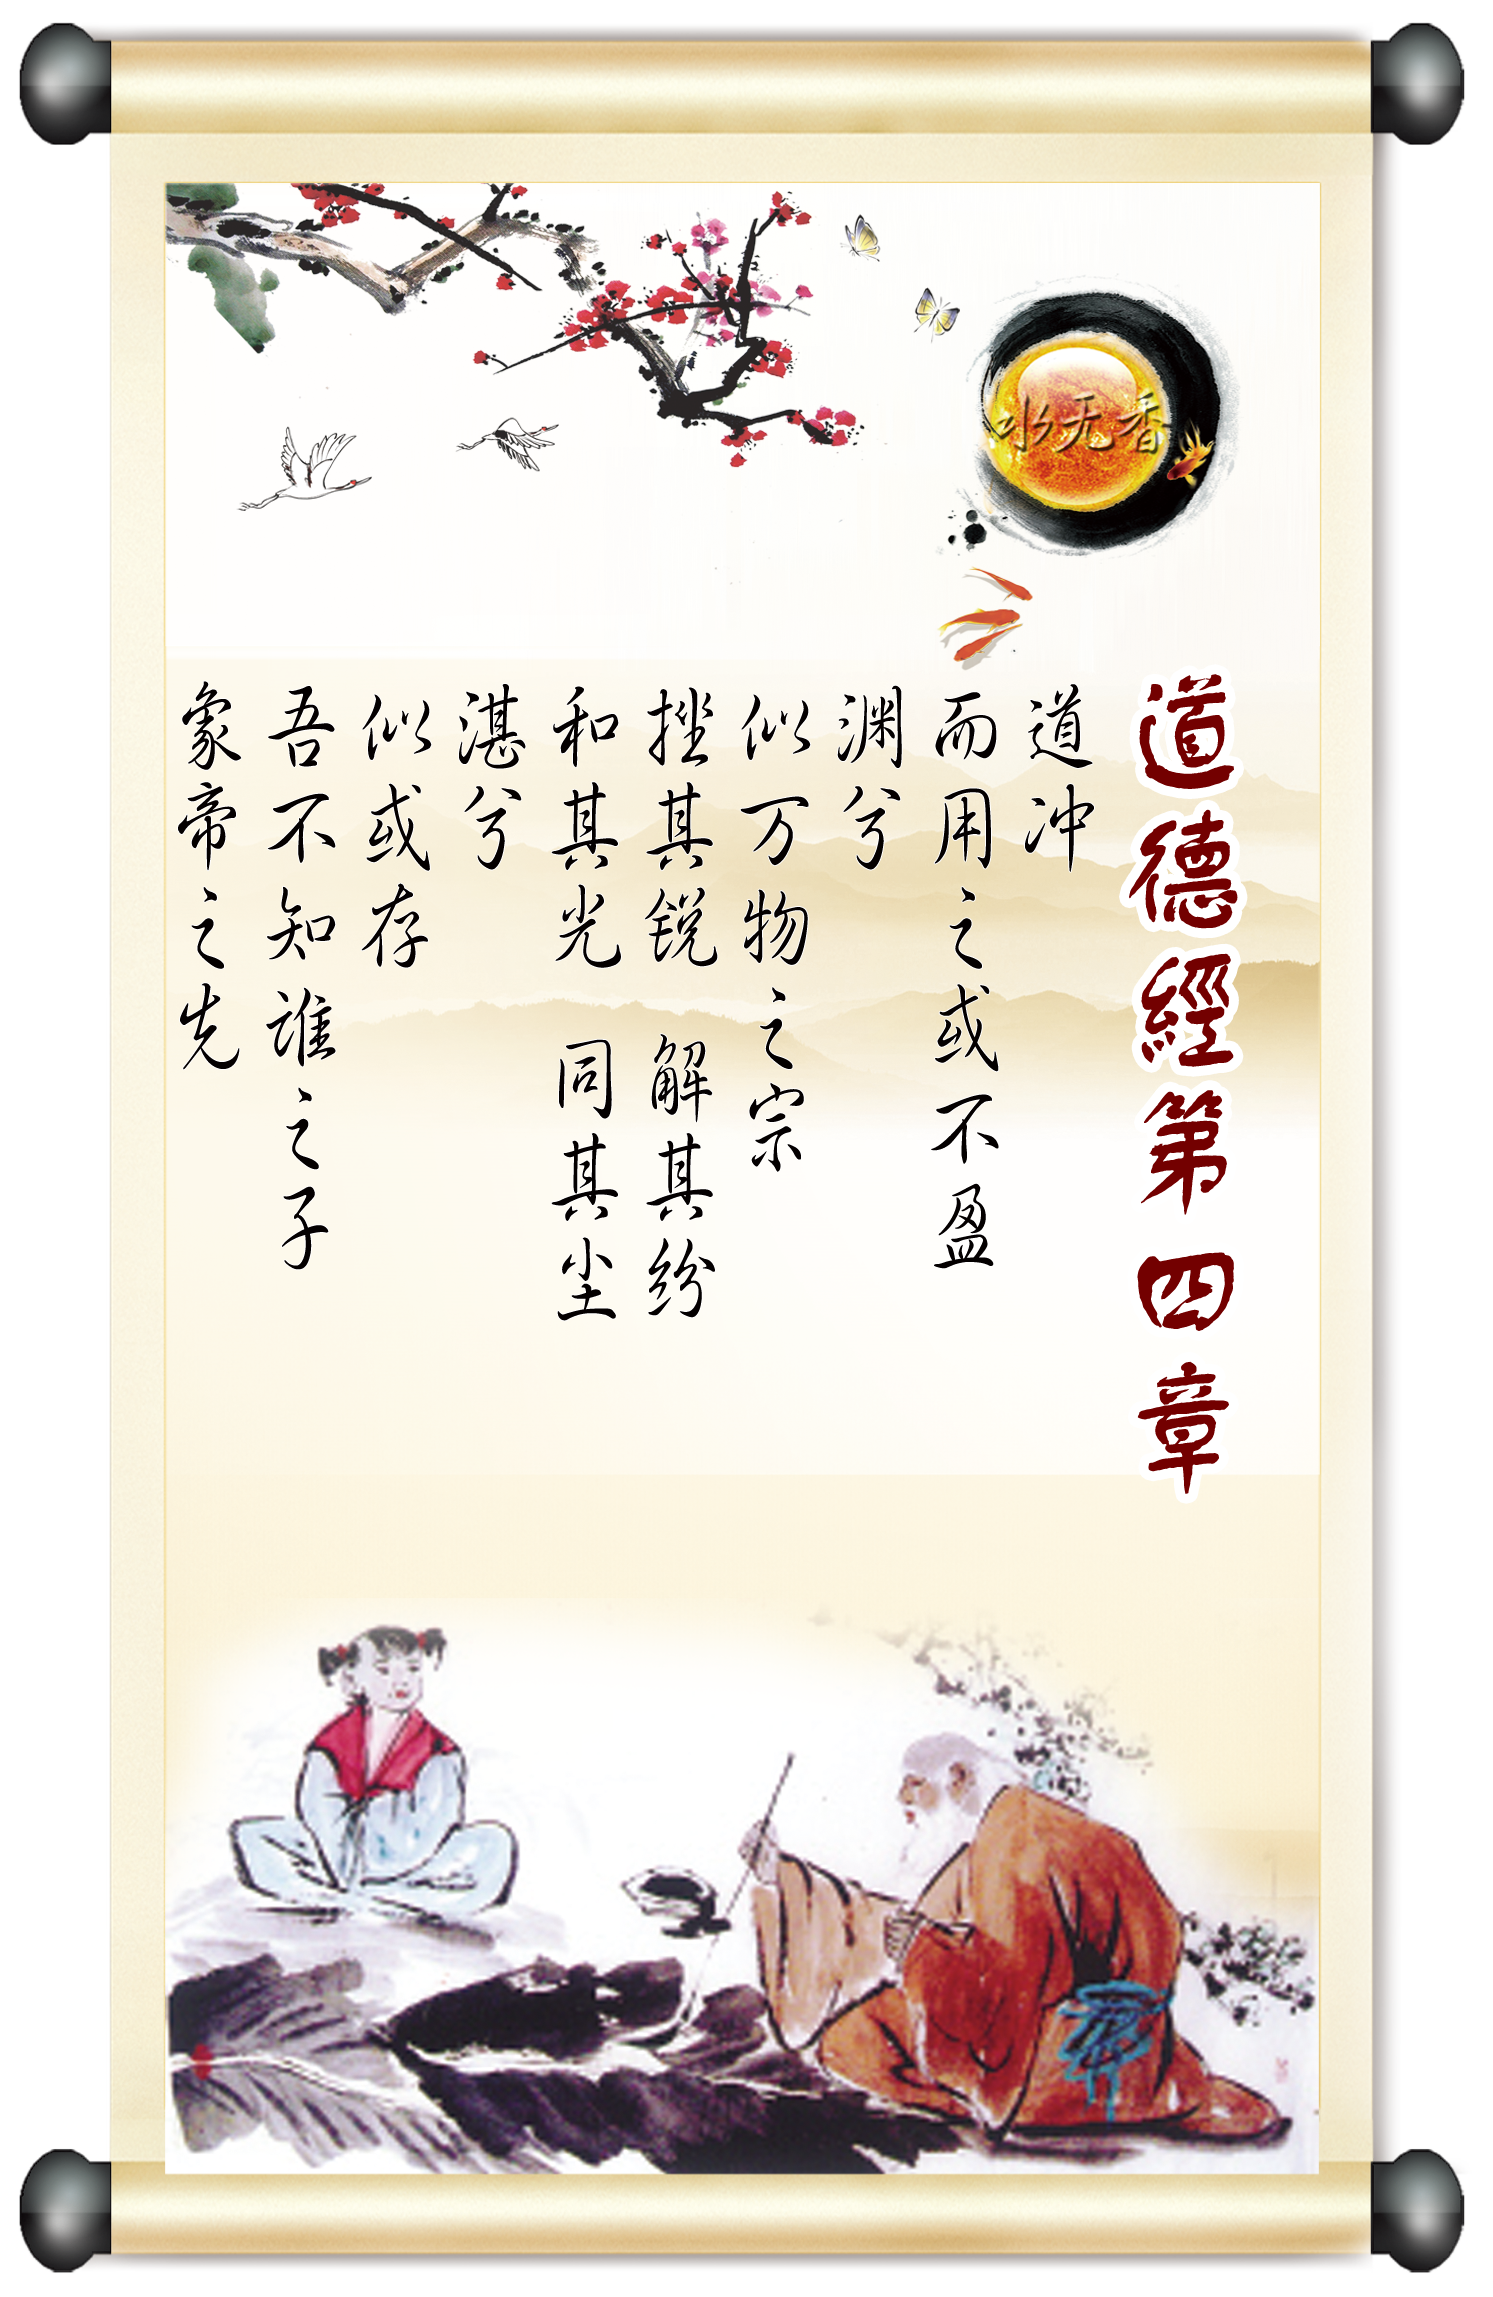 水无香
道德經第四章
道冲
而用之或不盈
渊兮
似万物之宗
挫其锐 解其纷
和其光 同其尘
湛兮
似或存
吾不知谁之子
象帝之先